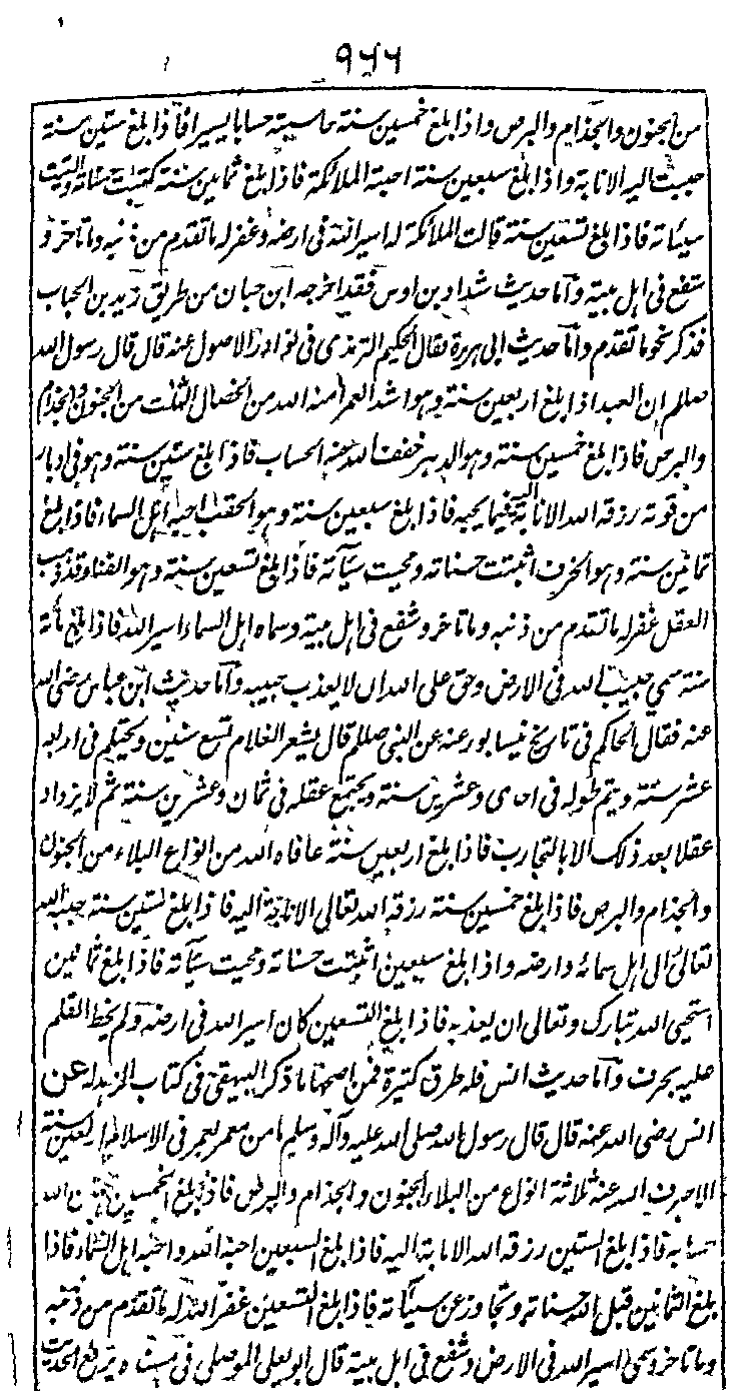 ٩٦٦
من الجنون والجذام والبرص واذا بلغ خمسين سنة حاسبته حسابا يسيرا فاذا بلغ ستين سنة
حببت اليه الانابة واذا بلغ سبعين سنة احبته الملائكة فاذا بلغ ثمانين سنة كتبت حسناته والقيت
سيئاته فاذا بلغ تسعين سنة قالت الملائكة له اسير الله فى ارضه وغفر له ما تقدم من ذنبه وما تاخر و
شفع فى اهل بيته وأما حديث شداد بن اوس فقد اخرجه ابن حبان من طريق زيد بن الحباب
فذكر نحو ما تقدم وأما حديث ابى هريرة فقال الحكيم الترمذى فى نوادر الاصول عنه قال قال رسول الله
صللم إن العبد اذا بلغ اربعين سنة وهو اشد العمر امنه الله من الخصال الثلث من الجنون والجذام
والبرص فاذا بلغ خمسين سنة وهو الدهر خفف الله عنه الحساب فاذا بلغ ستين سنة وهو فى ادبار
من قوته رزقه الله الانابة اليه فيما يحبه فاذا بلغ سبعين سنة وهو الحقب احبه اهل السماء فاذا بلغ
ثمانين سنة وهو الخرف اثبتت حسناته ومحيت سيآته فاذا بلغ تسعين سنة وهو الفناء وقد ذهب
العقل غفر له ما تقدم من ذنبه وما تاخر وشفع فى اهل بيته وسماه اهل السماء اسير الله فاذا بلغ مائة
سنة سمى حبيب الله فى الارض وحق على الله ان لا يعذب حبيبه وأما حديث ابن عباس رضى الله
عنه فقال الحاكم فى تاريخ نيسابور عنه عن النبى صللم قال يثغر الغلام لسبع سنين ويحتلم فى اربعة
عشر سنة ويتم طوله فى احدى وعشرين سنة ويجتمع عقله فى ثمان وعشرين سنة ثم لا يزداد
عقلا بعد ذلك الا بالتجارب فاذا بلغ اربعين سنة عافاه الله من انواع البلاء من الجنون
والجذام والبرص فاذا بلغ خمسين سنة رزقه الله تعالى الانابة اليه فاذا بلغ ستين سنة حببه الله
تعالى الى اهل سمائه وارضه واذا بلغ سبعين اثبتت حسناته ومحيت سيآته فاذا بلغ ثمانين
استحيى الله تبارك وتعالى ان يعذبه فاذا بلغ التسعين كان اسير الله فى ارضه ولم يخط القلم
عليه بحرف وأما حديث انس فله طرق كثيرة فمن اصحها ما ذكر البيهقى فى كتاب الزهد له عن
انس رضى الله عنه قال قال رسول الله صلى الله عليه وآله وسلم ما من معمر يعمر فى الاسلام اربعين سنة
الا صرف الله عنه ثلاثة انواع من البلاء الجنون والجذام والبرص فاذا بلغ الخمسين لين الله
حسابه فاذا بلغ الستين رزقه الله الانابة اليه فاذا بلغ السبعين احبه الله واحبه اهل السماء فاذا
بلغ الثمانين قبل الله حسناته وتجاوز عن سيآته فاذا بلغ التسعين غفر الله له ما تقدم من ذنبه
وما تاخر وسمى اسير الله فى الارض وشفع فى اهل بيته قال ابو يعلى الموصلى فى مسنده يرفع الحديث